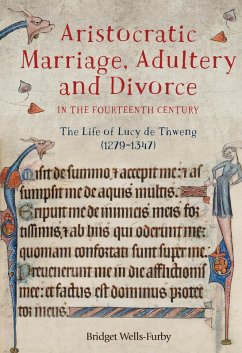 Aristocratic
Marriage, Adultery
and Divorce
IN THE FOURTEENTH CENTURY
The Life of Lucy de Thweng
(1279–1347)
Misit de summo & accepit me: & as
sumpsit me de aquis multis.
Eripuit me de inimicis meis for
tissimis. & ab hiis qui oderunt me:
quoniam confortati sunt super me.
Prevenerunt me in die afflictionis
mee: et factus est dominus protec
tor meus.
Bridget Wells-Furby